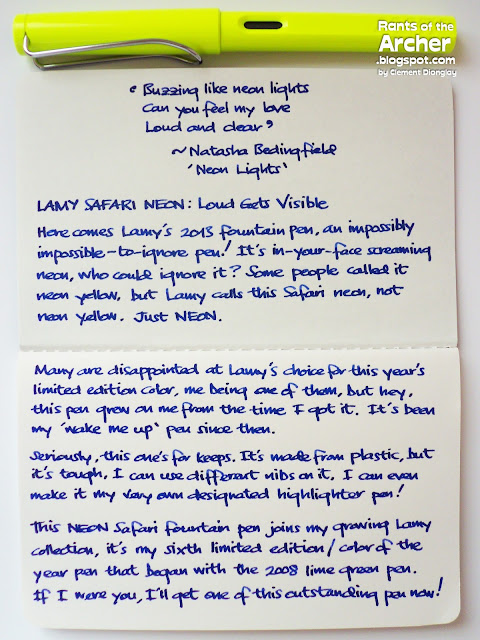 Rants of the
Archer
.blogspot.com
by Clement Dionglay
“Buzzing like neon lights
Can you feel my love
Loud and clear”
~Natasha Bedingfield
'Neon Lights'
LAMY SAFARI NEON: Loud Gets Visible
Here comes Lamy's 2013 fountain pen, an impossibly
impossible-to-ignore pen! It's in-your-face screaming
neon, who could ignore it? Some people called it
neon yellow, but Lamy calls this Safari neon, not
neon yellow. Just NEON.
Many are disappointed at Lamy's choice for this year's
limited edition color, me being one of them, but hey,
this pen grew on me from the time I got it. It's been
my 'wake me up' pen since then.
Seriously, this one's for keeps. It's made from plastic, but
it's tough, I can use different nibs on it, I can even
make it my very own designated highlighter pen!
This NEON Safari fountain pen joins my growing Lamy
collection, it's my sixth limited edition/color of the
year pen that began with the 2008 lime green pen.
If I were you, I'll get one of this outstanding pen now!